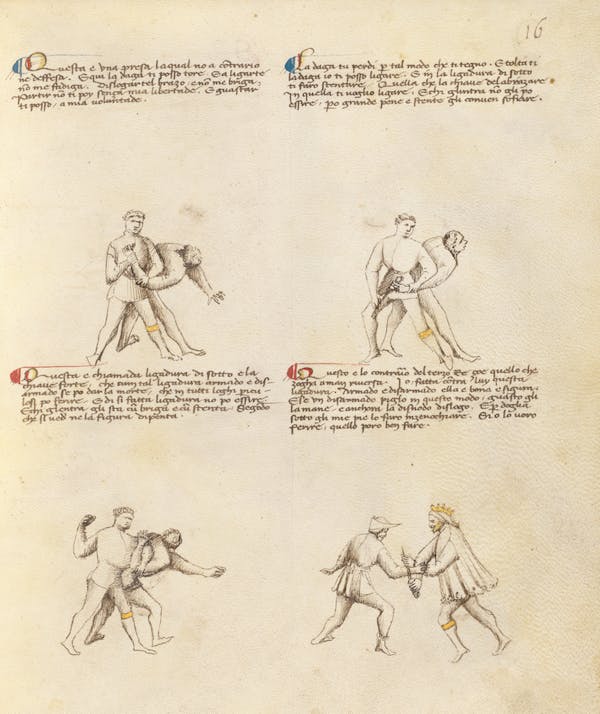 16
Questa e una presa la qual no a contrario
ne deffesa. E qui la daga ti posso tore. E a ligarte
no me fadiga. Dislogar tel brazo, e no me briga.
Partir no ti poy senza mia libertade. E guastar
ti posso, a mia voluntade.
La daga tu perdi p tal modo che ti tegno. E tolta ti
la daga io ti posso ligare. E in la ligadura di sotto
ti faro stentire, Quella che la chiave del abrazare
In quella ti voglio ligare. E chi gl'intra no gli po
essire, p˜o grande pene e stente gli conven sofrire.
Questa e chiamada ligadura di sotto e la
chiave forte, che cum tal ligadura armado e dis-
armado se po dar la morte, che in tutti loghi pericu-
losi po ferire. E di si fatta ligadura no po essire.
E chi gl'entra gli sta cu briga e cu stenta. Segodo
che si ved' ne la figura dipenta.
Questo e lo contrario del terzo Re çoe quello che
zogha a man riversa. Io o fatta contra luy questa
ligadura. Armado e disarmado ella e bona e sigura.
E se un disarmado piglo in questo modo, guasto gli
la mane e anchora la disnodo dislogo. E p dogla
sotto gli mie pie lo faro inzenochiare. E si lo voro
ferire, quello poro ben fare.